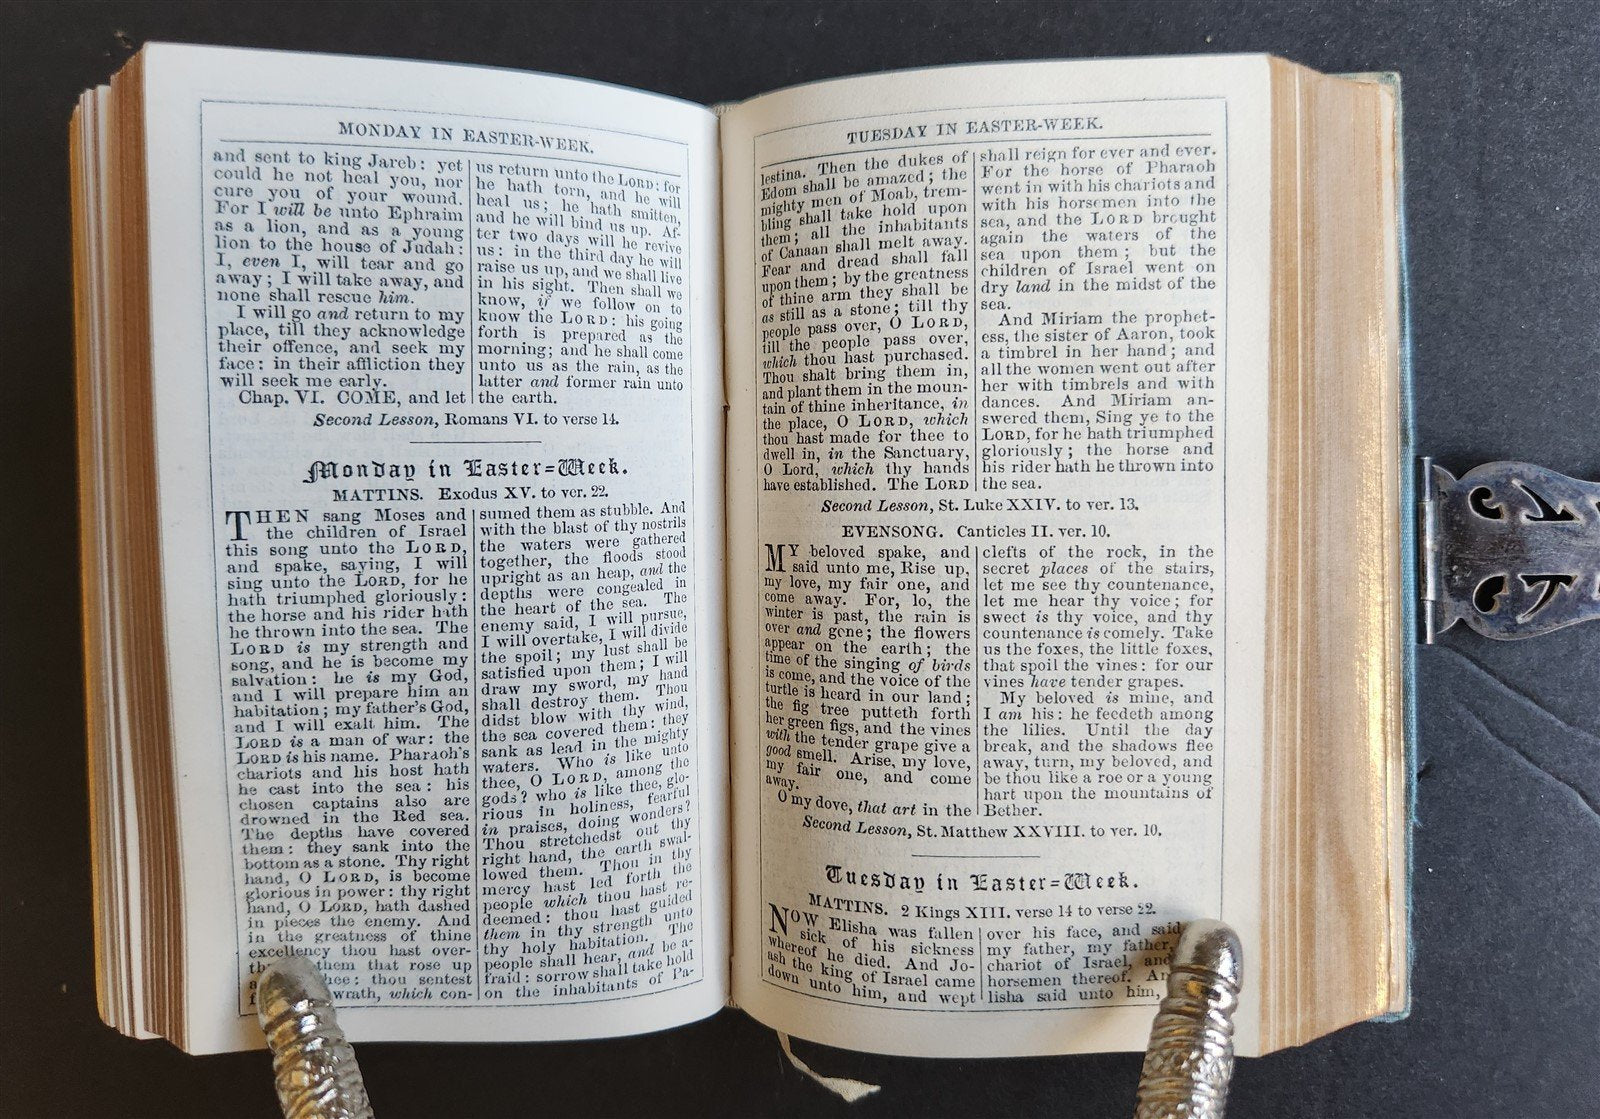 MONDAY IN EASTER-WEEK.
and sent to king Jareb: yet
could he not heal you, nor
cure you of your wound.
For I will be unto Ephraim
as a lion, and as a young
lion to the house of Judah:
I, even I, will tear and go
away; I will take away, and
none shall rescue him.
I will go and return to my
place, till they acknowledge
their offence, and seek my
face: in their affliction they
will seek me early.
Chap. VI. COME, and let
us return unto the LORD: for
he hath torn, and he will
heal us; he hath smitten,
and he will bind us up. Af-
ter two days will he revive
us: in the third day he will
raise us up, and we shall live
in his sight. Then shall we
know, if we follow on to
know the LORD: his going
forth is prepared as the
morning; and he shall come
unto us as the rain, as the
latter and former rain unto
the earth.
Second Lesson, Romans VI. to verse 14.
Monday in Easter=Week.
MATTINS. Exodus XV. to ver. 22.
THEN sang Moses and
the children of Israel
this song unto the LORD,
and spake, saying, I will
sing unto the LORD, for he
hath triumphed gloriously:
the horse and his rider hath
he thrown into the sea. The
LORD is my strength and
song, and he is become my
salvation: he is my God,
and I will prepare him an
habitation; my father's God,
and I will exalt him. The
LORD is a man of war: the
LORD is his name. Pharaoh's
chariots and his host hath
he cast into the sea: his
chosen captains also are
drowned in the Red sea.
The depths have covered
them: they sank into the
bottom as a stone. Thy right
hand, O LORD, is become
glorious in power: thy right
hand, O LORD, hath dashed
in pieces the enemy. And
in the greatness of thine
excellency thou hast over-
them that rose up
thou sentest
wrath, which con-
sumed them as stubble. And
with the blast of thy nostrils
the waters were gathered
together, the floods stood
upright as an heap, and the
depths were congealed in
the heart of the sea. The
enemy said, I will pursue,
I will overtake, I will divide
the spoil; my lust shall be
satisfied upon them; I will
draw my sword, my hand
shall destroy them. Thou
didst blow with thy wind,
the sea covered them: they
sank as lead in the mighty
waters. Who is like unto
thee, O LORD, among the
gods? who is like thee, glo-
rious in holiness, fearful
in praises, doing wonders?
Thou stretchedst out thy
right hand, the earth swal-
lowed them. Thou in thy
mercy hast led forth the
people which thou hast re-
deemed: thou hast guided
them in thy strength unto
thy holy habitation. The
people shall hear, and be a-
fraid: sorrow shall take hold
on the inhabitants of Pa-
TUESDAY IN EASTER-WEEK.
lestina. Then the dukes of
Edom shall be amazed; the
mighty men of Moab, trem-
bling shall take hold upon
them; all the inhabitants
of Canaan shall melt away.
Fear and dread shall fall
upon them; by the greatness
of thine arm they shall be
as still as a stone; till thy
people pass over, O LORD,
till the people pass over,
which thou hast purchased.
Thou shalt bring them in,
and plant them in the moun-
tain of thine inheritance, in
the place, O LORD, which
thou hast made for thee to
dwell in, in the Sanctuary,
O Lord, which thy hands
have established. The LORD
shall reign for ever and ever.
For the horse of Pharaoh
went in with his chariots and
with his horsemen into the
sea, and the LORD brought
again the waters of the
sea upon them; but the
children of Israel went on
dry land in the midst of the
sea.
And Miriam the prophet-
ess, the sister of Aaron, took
a timbrel in her hand; and
all the women went out after
her with timbrels and with
dances. And Miriam an-
swered them, Sing ye to the
LORD, for he hath triumphed
gloriously; the horse and
his rider hath he thrown into
the sea.
Second Lesson, St. Luke XXIV. to ver. 13.
EVENSONG. Canticles II. ver. 10.
MY beloved spake, and
said unto me, Rise up,
my love, my fair one, and
come away. For, lo, the
winter is past, the rain is
over and gone; the flowers
appear on the earth; the
time of the singing of birds
is come, and the voice of the
turtle is heard in our land;
the fig tree putteth forth
her green figs, and the vines
with the tender grape give a
good smell. Arise, my love,
my fair one, and come
away.
O my dove, that art in the
clefts of the rock, in the
secret places of the stairs,
let me see thy countenance,
let me hear thy voice; for
sweet is thy voice, and thy
countenance is comely. Take
us the foxes, the little foxes,
that spoil the vines: for our
vines have tender grapes.
My beloved is mine, and
I am his: he feedeth among
the lilies. Until the day
break, and the shadows flee
away, turn, my beloved, and
be thou like a roe or a young
hart upon the mountains of
Bether.
Second Lesson, St. Matthew XXVIII. to ver. 10.
Tuesday in Easter=Week.
MATTINS. 2 Kings XIII. verse 14 to verse 22.
NOW Elisha was fallen
sick of his sickness
whereof he died. And Jo-
ash the king of Israel came
down unto him, and wept
over his face, and said,
my father, my father,
chariot of Israel, and
horsemen thereof.
lisha said unto him,